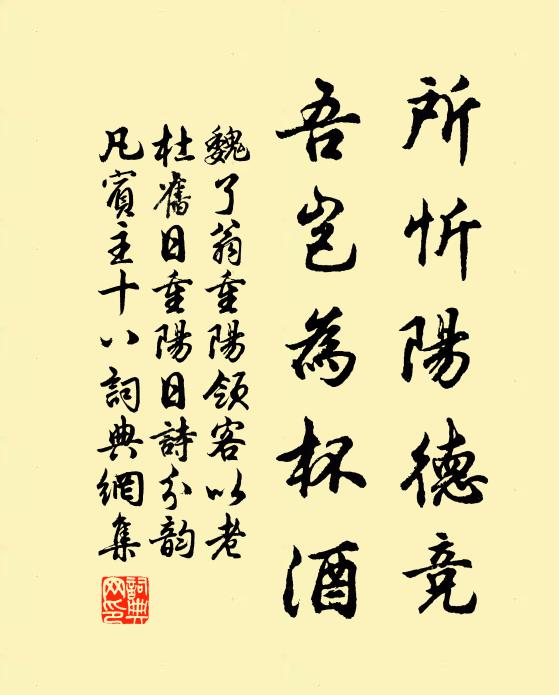 所忻陽德竞
吾岂為杯酒
魏了翁重陽領客以老
杜舊日重陽日詩分韵
凡賓主十八詞典網集
詞典网印